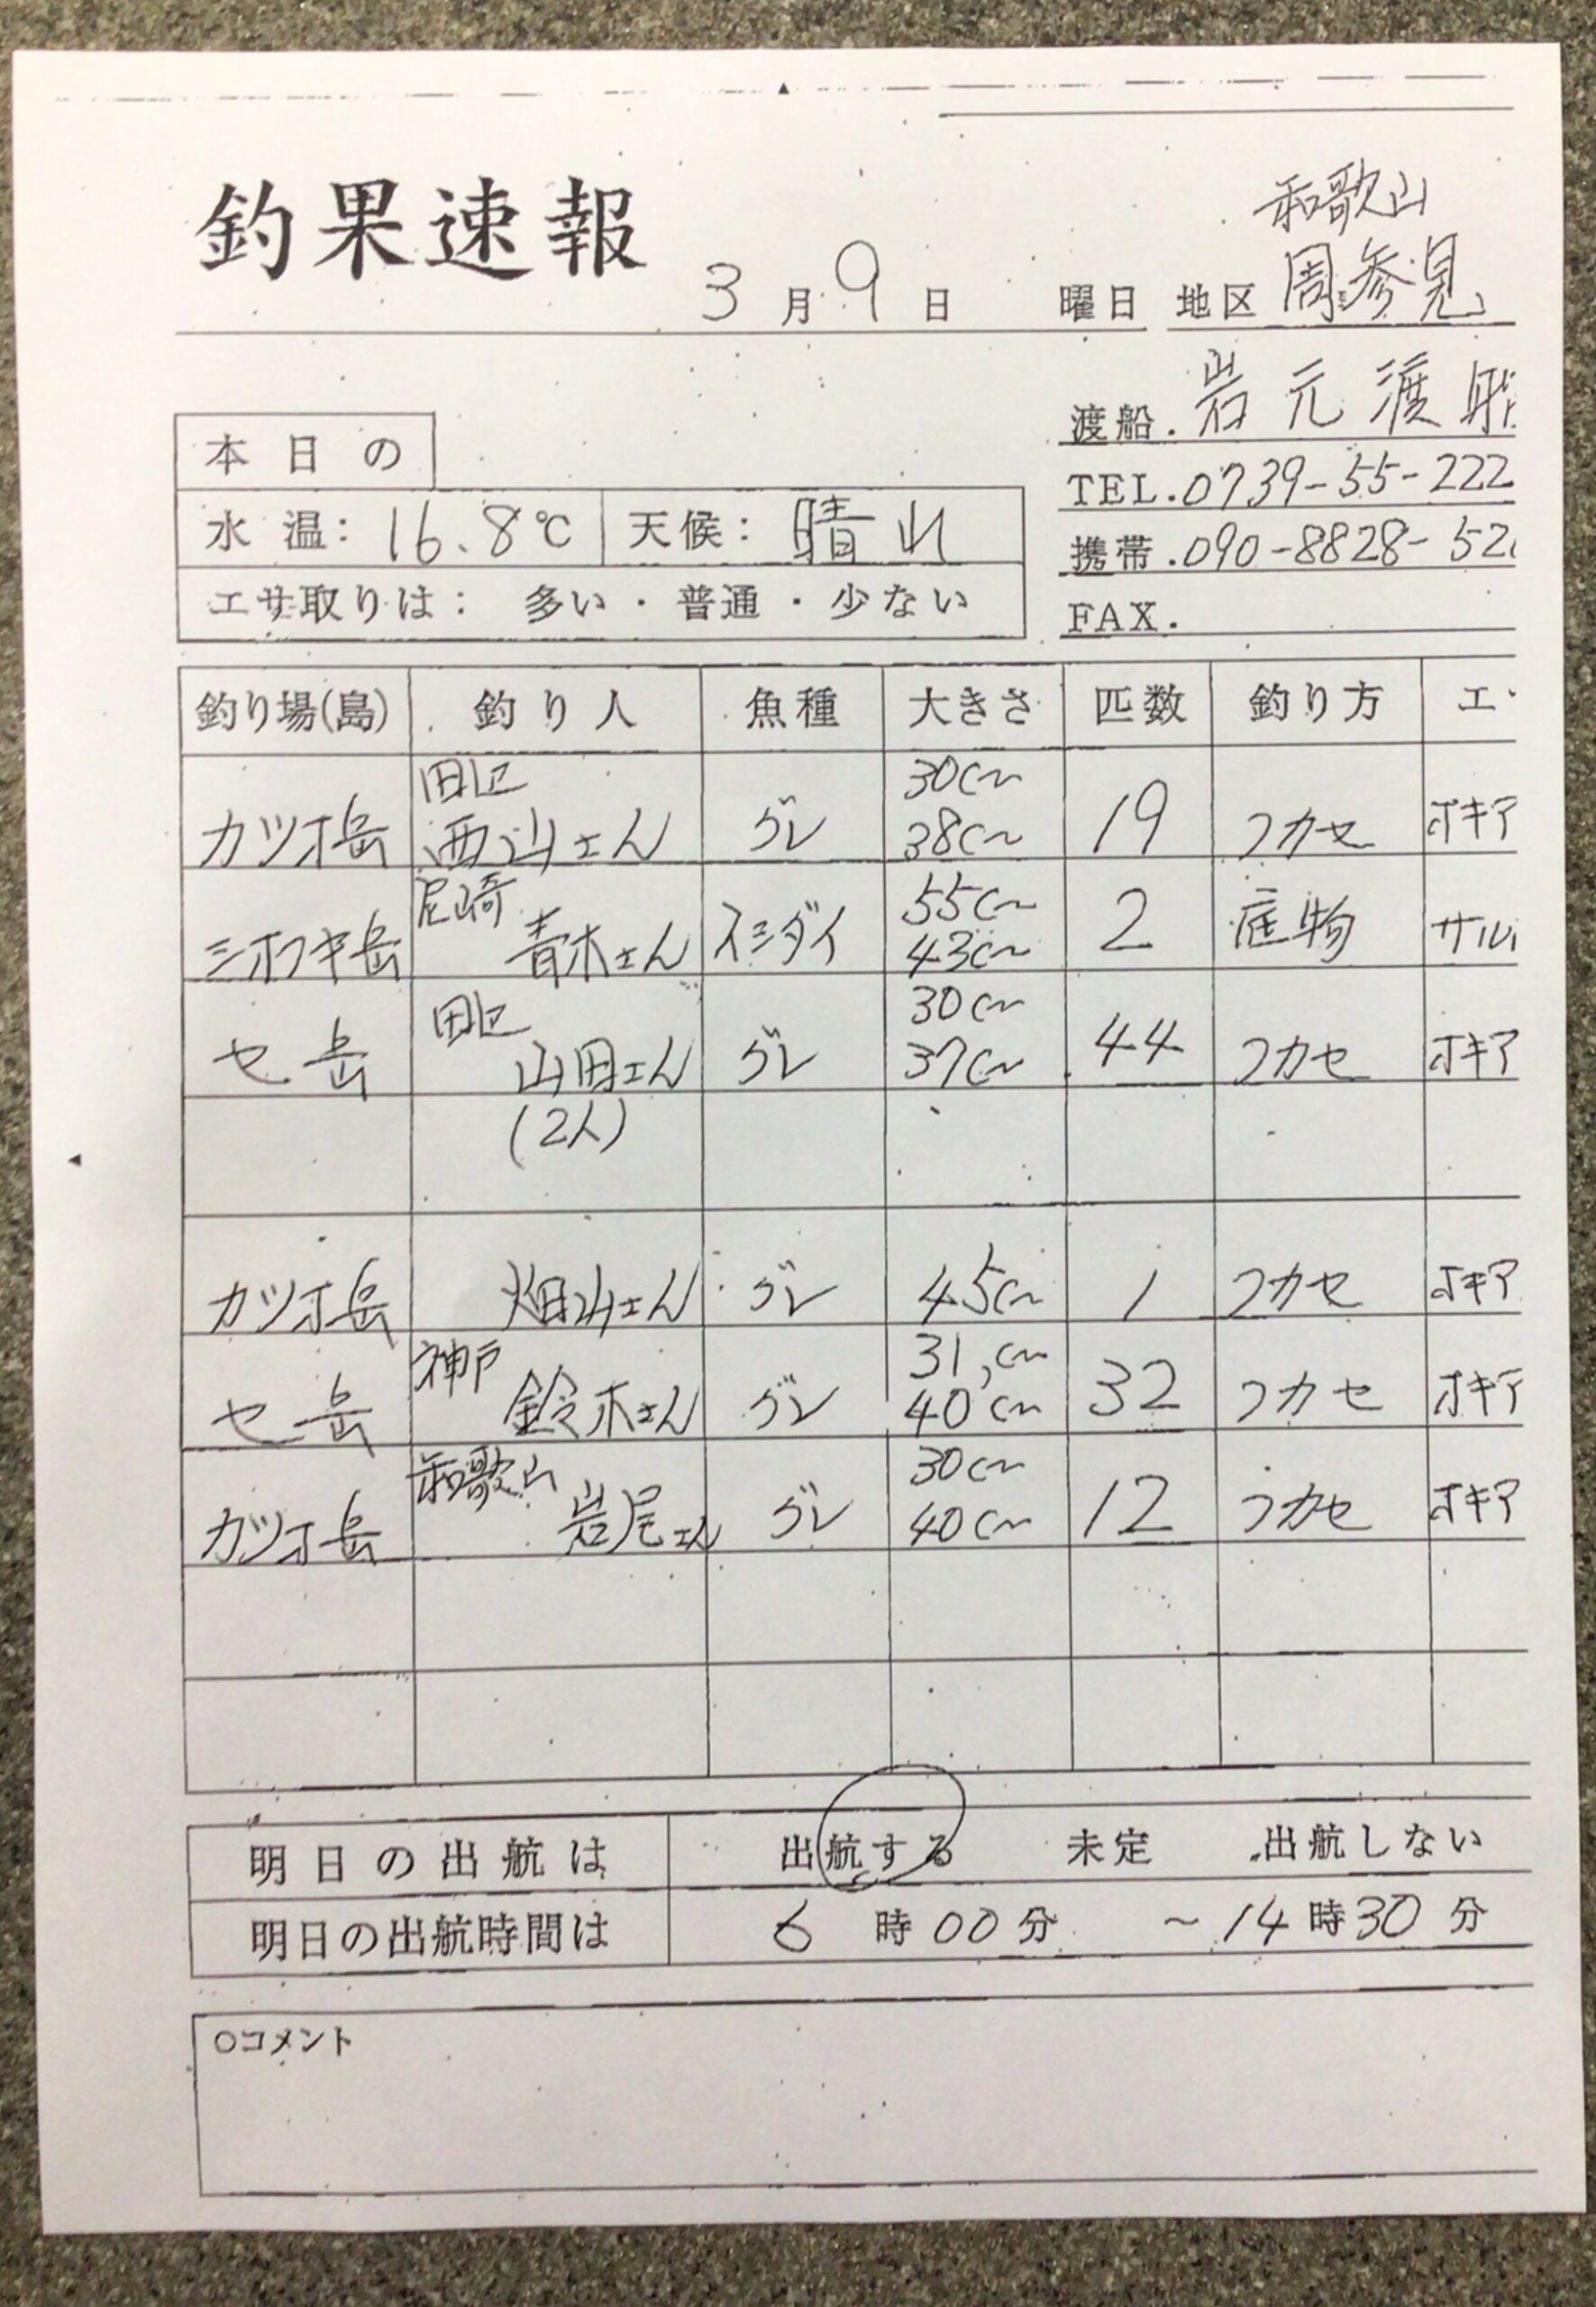 和歌山
釣果速報 3月9日 曜日 地区 周参見
渡船. 岩元渡船
本日の
TEL. 0739-55-222
水温: 16.8℃ 天候: 晴れ
携帯. 090-8828-52
エサ取りは: 多い・普通・少ない
FAX.
釣り場(島) 釣り人 魚種 大きさ 匹数 釣り方 エ
カツオ岳 田辺 西山さん グレ 30cm 38cm 19 フカセ オキア
シオフキ岳 尼崎 青木さん イシダイ 55cm 43cm 2 底物 サルい
セ岳 田辺 山田さん グレ 30cm 37cm 44 フカセ オキア
(2人)
カツオ岳 畑山さん グレ 45cm 1 フカセ オキア
セ岳 神戸 鈴木さん グレ 31,cm 40cm 32 フカセ オキア
カツオ岳 和歌山 岩尾さん グレ 30cm 40cm 12 フカセ オキア
明日の出航は 出航する 未定 出航しない
明日の出航時間は 6時00分 ～14時30分
○コメント